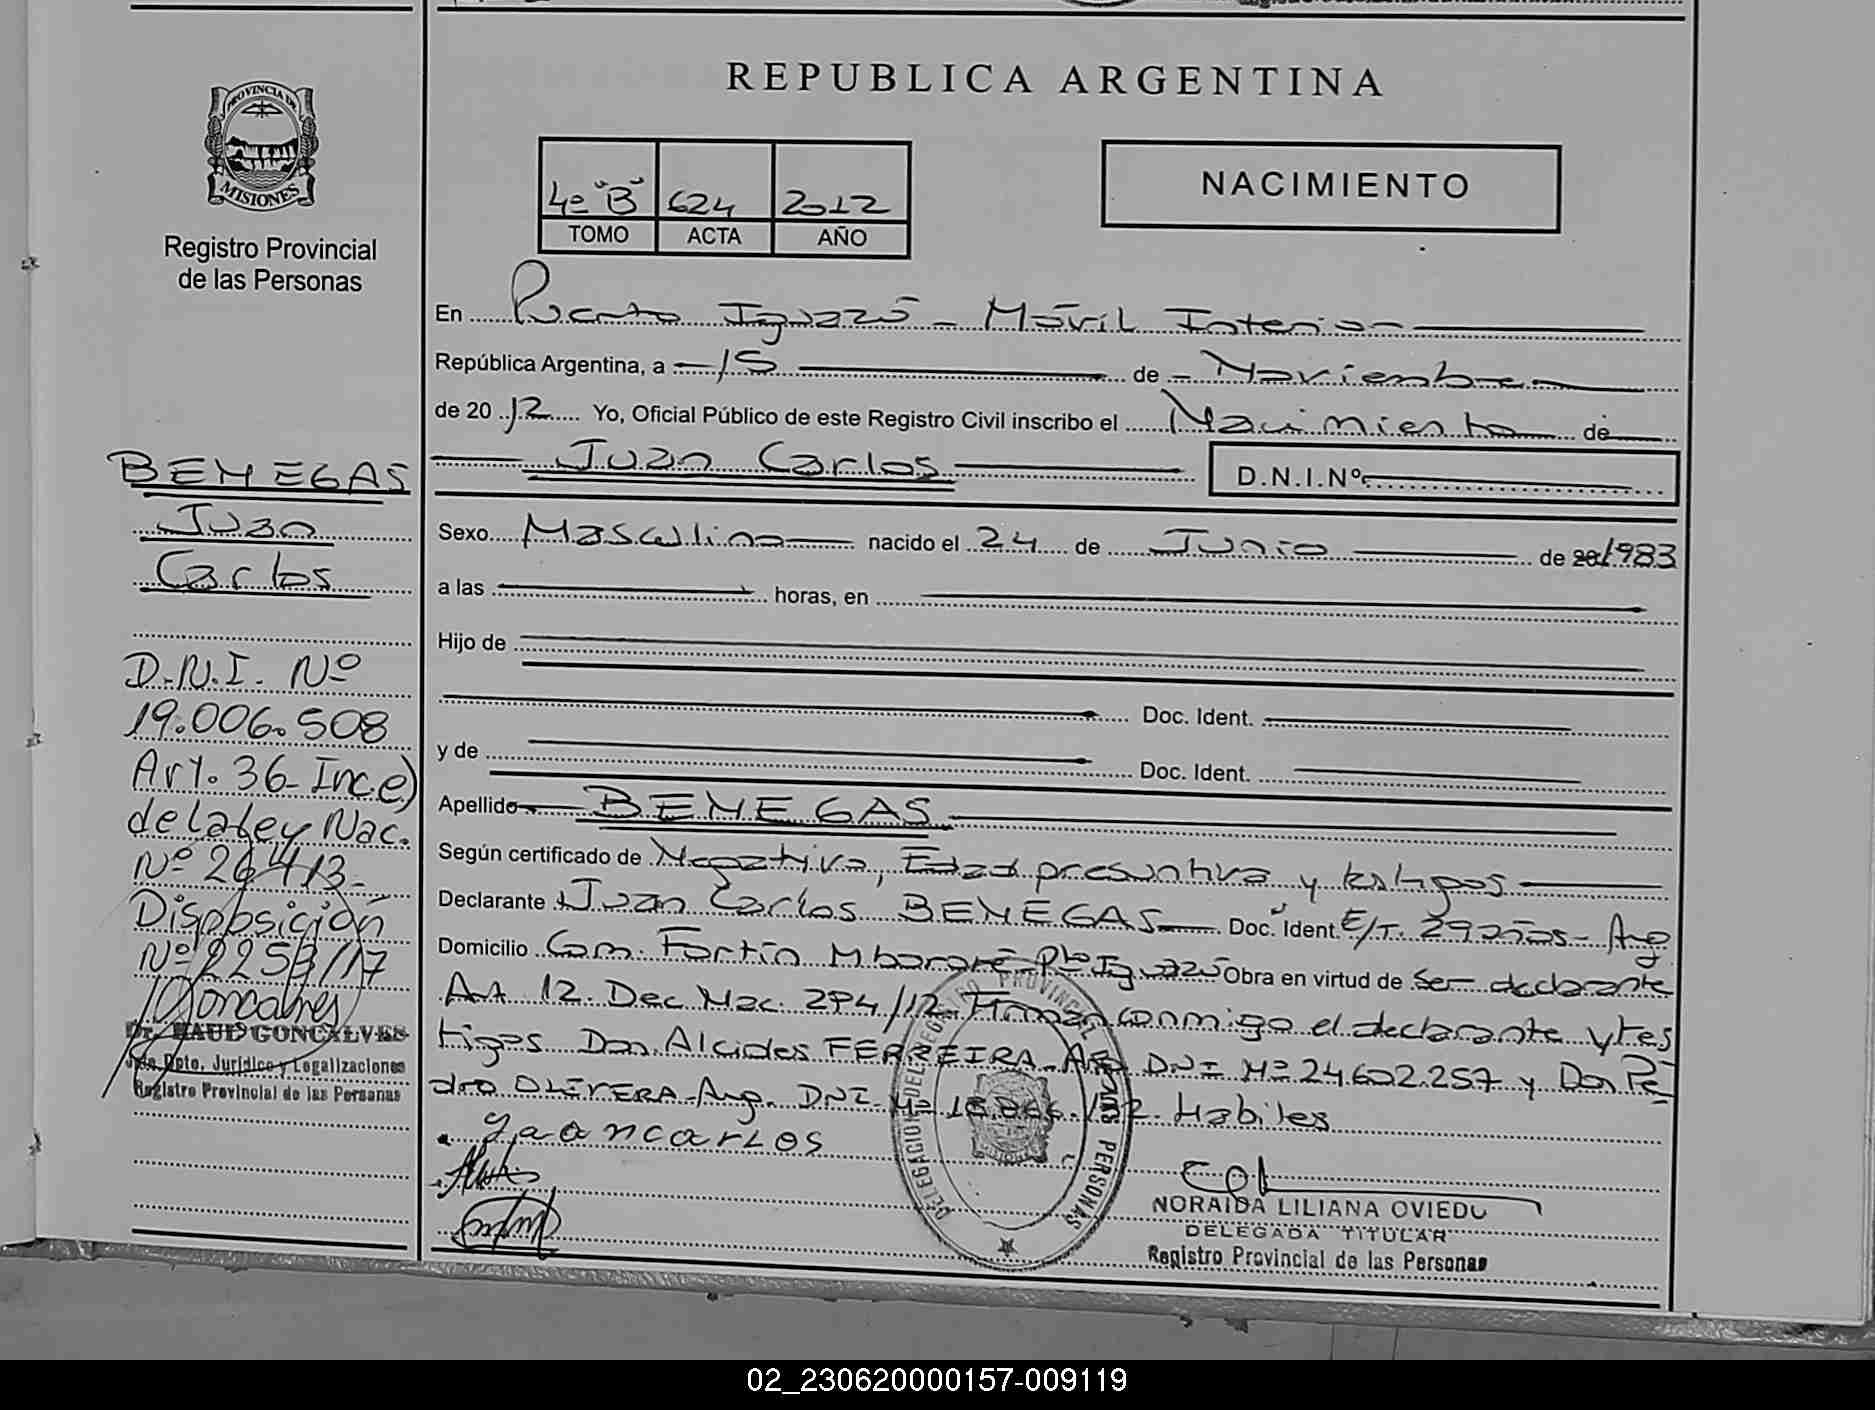 REPUBLICA ARGENTINA
PROVINCIA DE
MISIONES
Registro Provincial
de las Personas
4º "B" 624 2012
TOMO ACTA AÑO
NACIMIENTO
En Puerto Iguazú - Móvil Interior
República Argentina, a 15 de Noviembre
de 20 12 Yo, Oficial Público de este Registro Civil inscribo el Nacimiento de
Juan Carlos D.N.I.Nº
Sexo Masculino nacido el 24 de Junio de 20 1983
a las horas, en
Hijo de
Doc. Ident.
y de Doc. Ident.
Apellido BENEGAS
Según certificado de Negativa, Edad presuntiva y testigos
Declarante Juan Carlos BENEGAS Doc. Ident. E/T. 29 años - Arg
Domicilio Com. Fortín Mbororé Pto Iguazú Obra en virtud de Ser declarante
Art 12. Dec Nac. 274/12. Firman conmigo el declarante y tes
tigos Don Alcides FERREIRA - Arg DNI Nº 24602.257 y Don Pe
dro OLIVERA - Arg. DNI Nº Habiles
Jaancarlos
DELEGACION DEL REGISTRO PROVINCIAL DE LAS PERSONAS
MISIONES
NORAIDA LILIANA OVIEDO
DELEGADA TITULAR
Registro Provincial de las Personas
BENEGAS
Juan
Carlos
D.N.I. Nº
19.006.508
Art. 36 - Inc. e)
de la ley Nac.
Nº 26413 -
Disposición
Nº 2259/17
Goncalves
Dr. RAUL GONCALVES
Jefe Dpto. Jurídico y Legalizaciones
Registro Provincial de las Personas
02_230620000157-009119